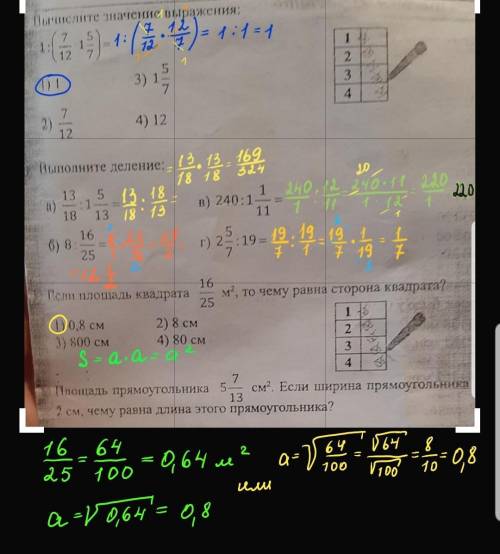 Вычислите значение выражения:
1:(7/12 · 1 5/7) = 1:(7/12 · 12/7) = 1:1 = 1
1) 1 3) 1 5/7
2) 7/12 4) 12
1
2
3
4
Выполните деление: = 13/18 · 13/18 = 169/324
а) 13/18 : 1 5/13 = 13/18 : 18/13 = в) 240 : 1 1/11 = 240/1 : 12/11 = 240·11/1·12 = 220/1 220
б) 8 : 16/25 = г) 2 5/7 : 19 = 19/7 : 19/1 = 19/7 · 1/19 = 1/7
Если площадь квадрата 16/25 м², то чему равна сторона квадрата?
1) 0,8 см 2) 8 см
3) 800 см 4) 80 см
S = a · a = a²
1
2
3
4
Площадь прямоугольника 5 7/13 см². Если ширина прямоугольника
2 см, чему равна длина этого прямоугольника?
16/25 = 64/100 = 0,64 м²
или
a = √64/100 = √64/√100 = 8/10 = 0,8
a = √0,64 = 0,8